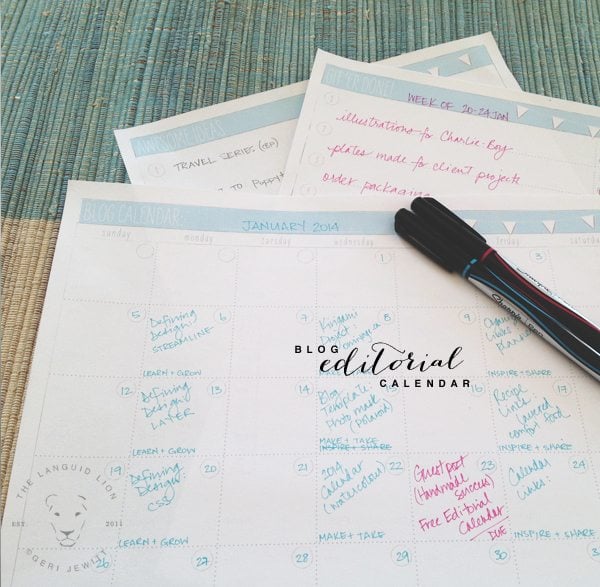 GET ER DONE!
WEEK OF 20-24 JAN
1
illustrations for Charlie Boy
2
plates made for client projects
3
order packaging
AWESOME IDEAS
1 TRAVEL SERIES (BP)
to Puppy
BLOG CALENDAR:
JANUARY 2014
sunday monday tuesday wednesday friday saturday
1
5 6 7 8 9 10
Defining
Design:
STREAMLINE
LEARN + GROW
Kirigami
Project:
MAKE + TAKE
Links:
planner
INSPIRE + SHARE
BLOG
editorial
CALENDAR
12 13 14 15 16 17
Defining
Design:
LATER
LEARN + GROW
Blog
Template:
Photo mask
(Polaroid)
MAKE + TAKE
INSPIRE + SHARE
Recipe
Links
Layered
comfort food
INSPIRE + SHARE
19 20 21 22 23 24
Defining
Design:
CSS
LEARN + GROW
2014
Calendar
(Watercolour)
MAKE + TAKE
Guest post
(Handmade
Success)
Free Editorial
Calendar
DUE
Calendar
Links:
INSPIRE + SHARE
26 27 28 29 30 31
THE LANGUID LION
EST. 2011
©GERI JEWITT